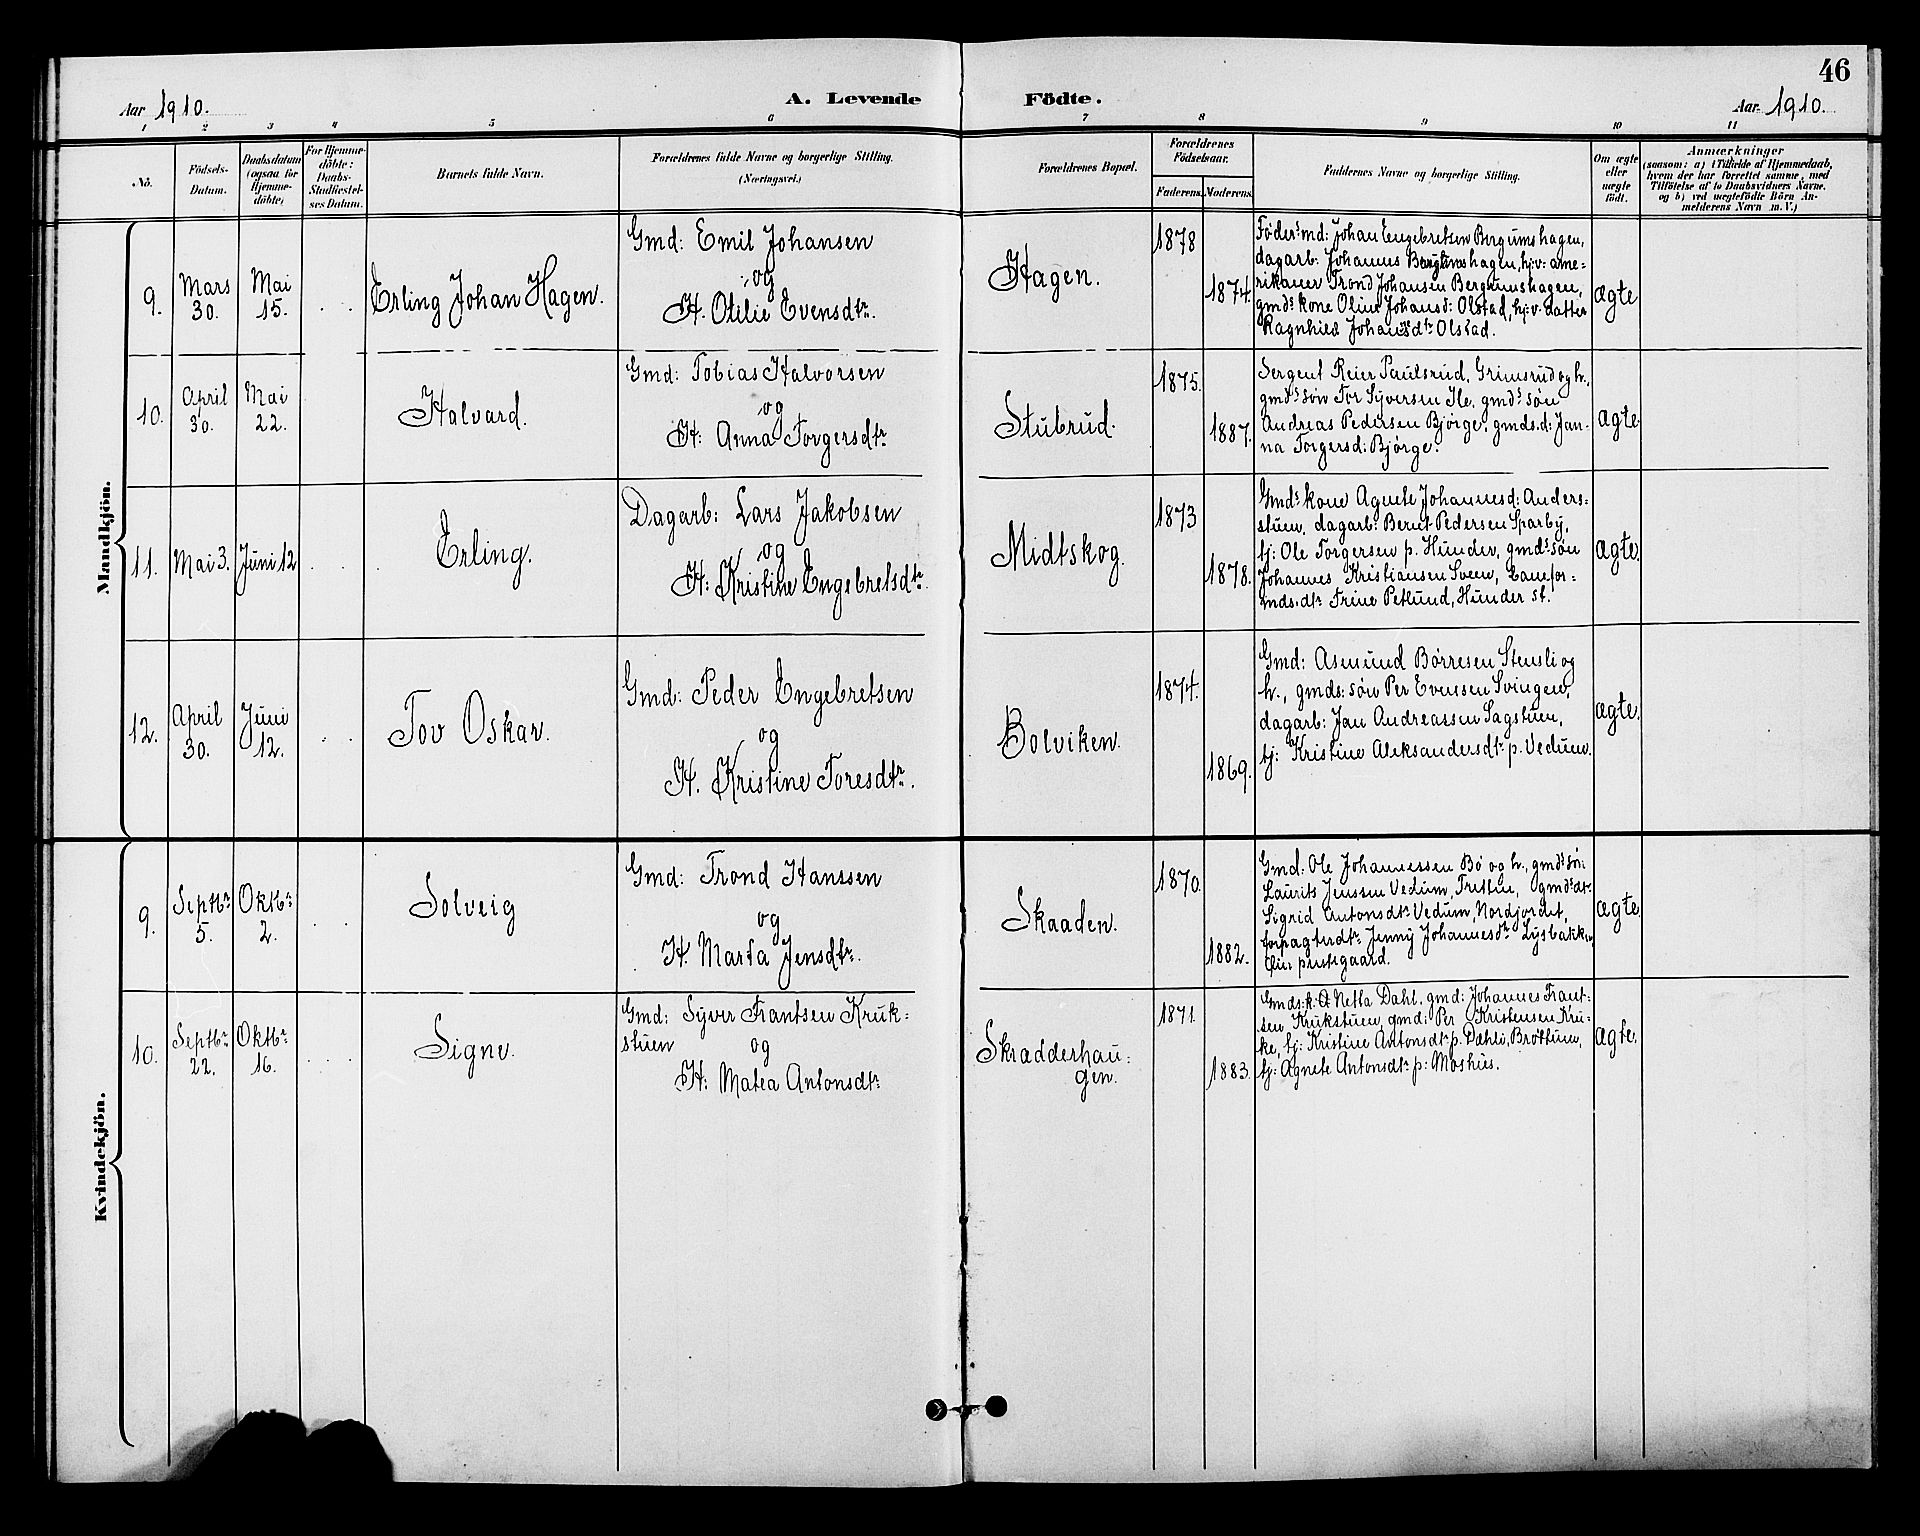 46
Aar 1910.
A. Levende Födte.
Aar 1910.
1 2 3 4 5 6 7 8 9 10 11
No.
Födsels-
Datum.
Daabsdatum
(ogsaa for
Hjemme-
döbte)
For Hjemme-
döbte:
Daabs-
Stadfæstel-
ses Datum.
Barnets fulde Navn.
Forældrenes fulde Navne og borgerlige Stilling.
(Næringsvei.)
Forældrenes Bopæl.
Forældrenes
Födselsaar.
Faderens. Moderens.
Faddernes Navne og borgerlige Stilling.
Om ægte
eller
uægte
födt.
Anmærkninger
(saasom: a) i Tilfælde af Hjemmedaab,
hvem der har forrettet samme, med
Tilföielse af to Daabsvidners Navne.
og b) ved uægtefödte Börn An-
melderens Navn m. V.)
Mandkjön.
9.
Mars
30.
Mai
15.
Erling Johan Hagen.
Gmd: Emil Johansen
og
H. Otilie Evensdtr.
Hagen.
1878
1874.
Föders md: Johan Engebretsen Bergumshagen,
dagarb: Johannes Bergumshagen, hj:v: ame-
rikaner Trond Johansen Bergumshagen,
gmds kone Oline Johansd: Olstad, hj:v. datter
Ragnhild Johansdtr Olstad.
ægte
10.
April
30.
Mai
22.
Halvard.
Gmd: Tobias Halvorsen
og
H: Anna Torgersdtr
Stubrud.
1875.
1887.
Sergent Reier Paulsrud, Grimsrud og h.,
gmds søn Tor Syversen Ile, gmds søn
Andreas Pedersen Bjørge, gmds.d: Jan-
na Torgersd: Bjørge.
ægte
11.
Mai 3.
Juni 12
Erling.
Dagarb: Lars Jakobsen
og
H: Kristine Engebretsdtr.
Midtskog.
1873
1878.
Gmds kone Agnete Johannesd: Anders-
stuen, dagarb: Bernt Pedersen Sparby,
tj: Ole Torgersen p. Hunder, gmds søn
Johannes Kristiansen Sveen, banefor-
mds.dtr Trine Petlund, Hunder st.
ægte.
12.
April
30.
Juni
12.
Tov Oskar.
Gmd: Peder Engebretsen
og
H. Kristine Toresdtr.
Bolviken.
1874.
1869.
Gmd: Asmund Børresen Stensli og
h., gmds: søn Per Evensen Svingen,
dagarb: Jan Andreassen Sagstuen,
tj: Kristine Aleksandersdtr p. Vedum.
ægte.
Kvindekjön.
9.
Septbr
5.
Oktbr
2.
Solveig
Gmd: Trond Hanssen
og
H. Marta Jensdtr.
Skaaden.
1870.
1882.
Gmd: Ole Johannessen Bø og h., gmds søn
Laurits Jenssen Vedum, gmds dtr
Sigrid Antonsdtr Vedum, Nordjordet,
forpagterdtr Jenny Johannesdtr Lysbakken,
Øier prestegaard.
ægte
10.
Septbr
22.
Oktbr
16.
Signe.
Gmd: Syver Frantsen Kruk-
stuen
og
H: Matea Antonsdtr
Skrædderhau-
gen.
1871.
1883.
Gmds:k: A Netta Dahl, gmd: Johannes Frant-
sen Krukstuen, gmd: Per Kristensen Kru-
ke, tj: Kristine Antonsdtr p. Dæhli, Brøttum,
tj: Agnete Antonsdtr p: Moshus.
ægte.